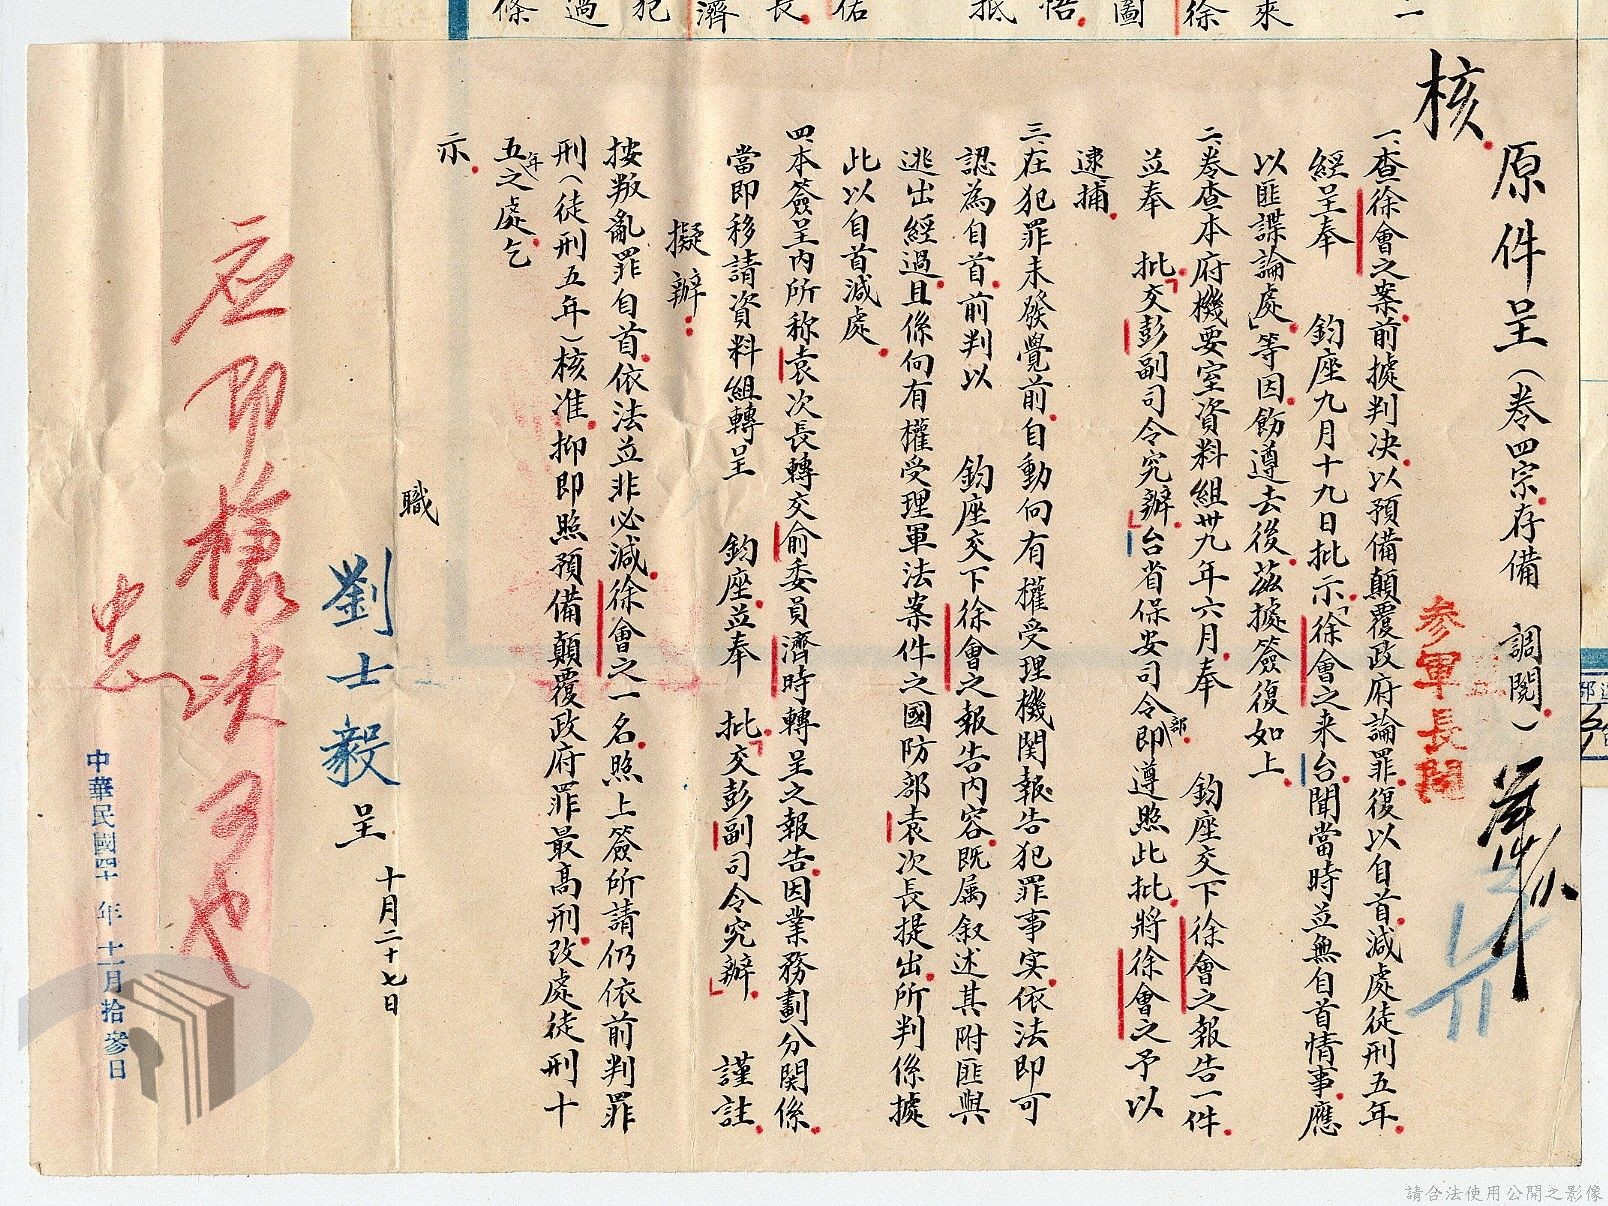 條過犯濟長佑抵悟圖徐來二
核
原件呈（卷四宗存備 調閱）
參軍長閱
一、查徐會之案前據判決以預備顛覆政府論罪復以自首減處徒刑五年
經呈奉 鈞座九月十九日批示「徐會之來台聞當時並無自首情事應
以匪諜論處」等因飭遵去後茲據簽復如上
二、卷查本府機要室資料組卅九年六月奉 鈞座交下徐會之報告一件
並奉 批「交彭副司令究辦」台省保安司令部即遵照此批將徐會之予以
逮捕
三、在犯罪未發覺前自動向有權受理機關報告犯罪事实依法即可
認為自首前判以 鈞座交下徐會之報告內容既属叙述其附匪與
逃出經過且係向有權受理軍法案件之國防部袁次長提出所判係據
此以自首減處
四、本簽呈內所称袁次長轉交俞委員濟時轉呈之報告因業務劃分関係
當即移請資料組轉呈 鈞座並奉 批「交彭副司令究辦」 謹註
擬辦：
按叛亂罪自首依法並非必減徐會之一名照上簽所請仍依前判罪
刑（徒刑五年）核准抑即照預備顛覆政府罪最高刑改處徒刑十
五年之處乞
示
職 劉士毅 呈 十月二十七日
应即槍决可也
中華民國四十年十一月拾參日
請合法使用公開之影像